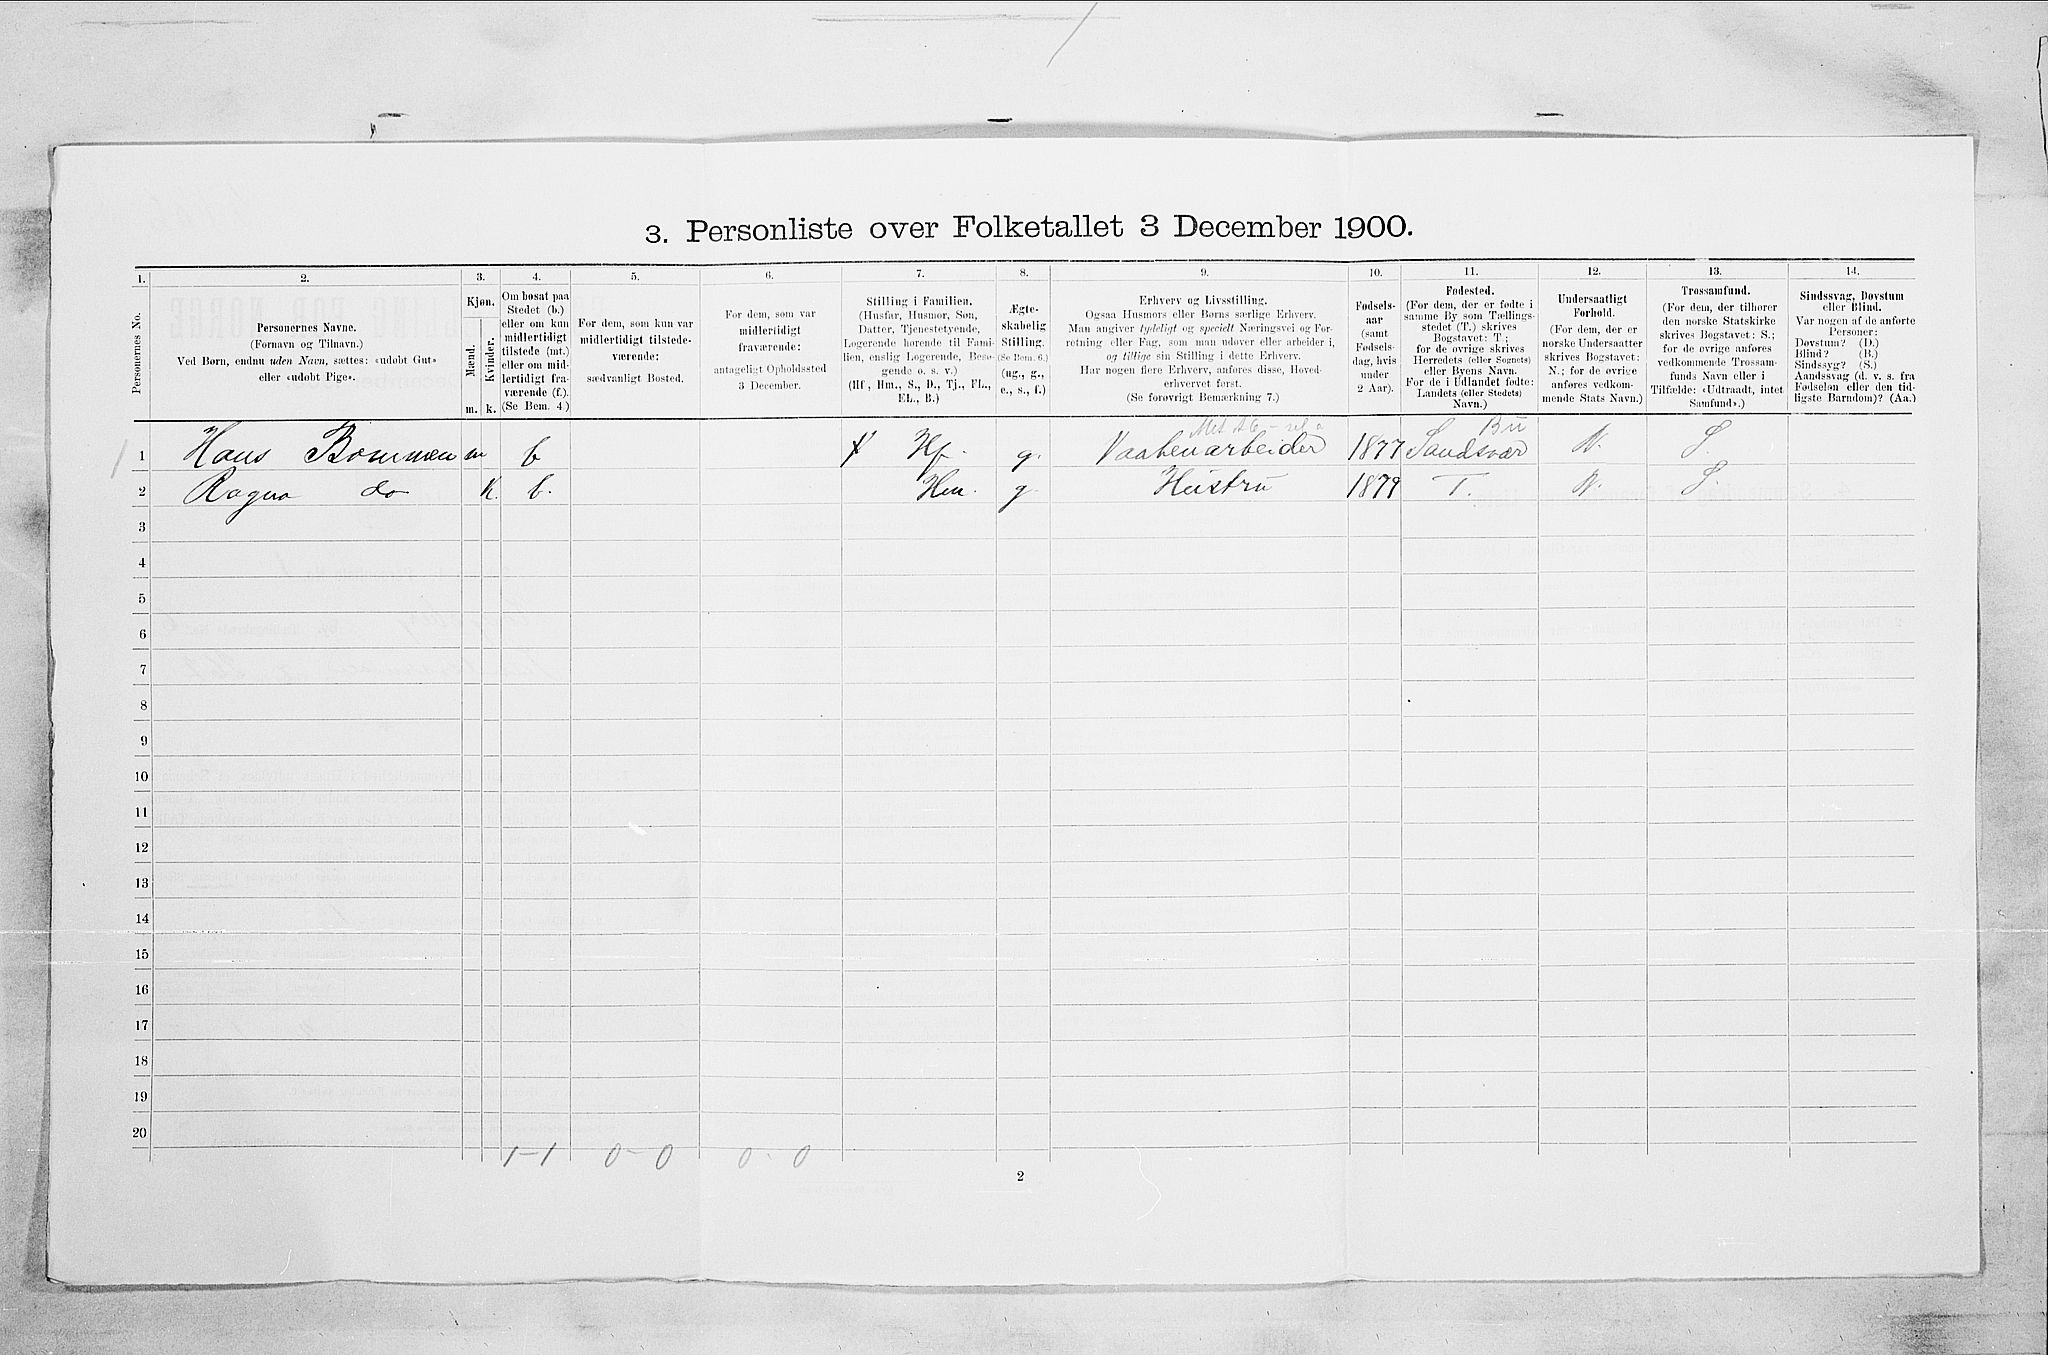 3. Personliste over Folketallet 3 December 1900.
1. 2. 3. 4. 5. 6. 7. 8. 9. 10. 11. 12. 13. 14.
Personernes No.
Personernes Navne.
(Fornavn og Tilnavn.)
Ved Børn, endnu uden Navn, sættes: «udøbt Gut»
eller «udøbt Pige».
Kjøn.
Mænd.
Kvinder.
m. k.
Om bosat paa
Stedet (b.)
eller om kun
midlertidigt
tilstede (mt.)
eller om mid-
lertidigt fra-
værende (f.).
(Se Bem. 4)
For dem, som kun var
midlertidigt tilstede-
værende:
sædvanligt Bosted.
For dem, som var
midlertidigt
fraværende:
antageligt Opholdssted
3 December.
Stilling i Familien.
(Husfar, Husmor, Søn,
Datter, Tjenestetyende,
Logerende hørende til Fami-
lien, enslig Logerende, Besø-
gende o. s. v.)
(Hf, Hm., S., D., Tj., FL.,
EL., B.)
Ægte-
skabelig
Stilling.
(Se Bem. 6.)
(ug., g.,
e., s., f.)
Erhverv og Livsstilling.
Ogsaa Husmors eller Børns særlige Erhverv.
Man angiver tydeligt og specielt Næringsvei og For-
retning eller Fag, som man udøver eller arbeider i,
og tillige sin Stilling i dette Erhverv.
Har nogen flere Erhverv, anføres disse, Hoved-
erhvervet først.
(Se forøvrigt Bemærkning 7.)
Fødsels-
aar
(samt
Fødsels-
dag, hvis
under
2 Aar).
Fødested.
(For dem, der er fødte i
samme By som Tællings-
stedet (T.) skrives
Bogstavet: T.;
for de øvrige skrives
Herredets (eller Sognets)
eller Byens Navn.
For de i Udlandet fødte:
Landets (eller Stedets)
Navn.)
Undersaatligt
Forhold.
(For dem, der er
norske Undersaatter
skrives Bogstavet:
N.; for de øvrige
anføres vedkom-
mende Stats Navn.)
Trossamfund.
(For dem, der tilhører
den norske Statskirke
skrives Bogstavet: S.;
for de øvrige anføres
vedkommende Trossam-
funds Navn eller i
Tilfælde: «Udtraadt, intet
Samfund».)
Sindssvag, Døvstum
eller Blind.
Var nogen af de anførte
Personer:
Døvstum? (D.)
Blind? (B.)
Sindssyg? (S.)
Aandssvag (d. v. s. fra
Fødselen eller den tid-
ligste Barndom)? (Aa.)
Bu
1 1 Hans Bommen m b X Hf. g. Vaabenarbeider 1877 Sandsvær N. S.
2 Ragna do k. b. Hm. g. Hustru 1879 T. N. S.
3
4
5
6
7
8
9
10
11
12
13
14
15
16
17
18
19
20
1-1 0-0 0-0
2